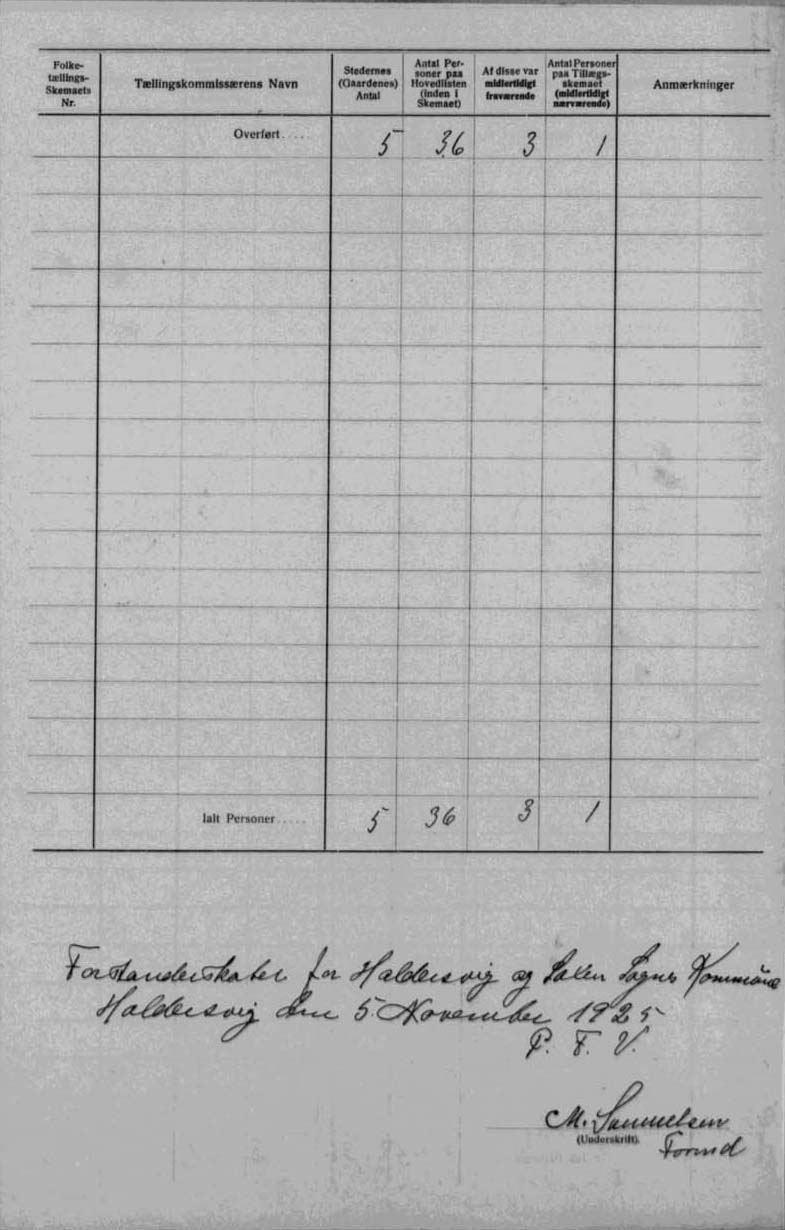 Folke-
tællings-
Skemaets
Nr.
Tællingskommissærens Navn
Stedernes
(Gaardenes)
Antal
Antal Per-
soner paa
Hovedlisten
(inden i
Skemaet)
Af disse var
midlertidigt
fraværende
Antal Personer
paa Tillægs-
skemaet
(midlertidigt
nærværende)
Anmærkninger
Overført..... 5 36 3 1
Ialt Personer..... 5 36 3 1
Forstanderskabet for Haldersvig og Saxen Sogns Kommune
Haldersvig den 5. November 1925
P. F. V.
M. Samuelsen
(Underskrift).
Formd